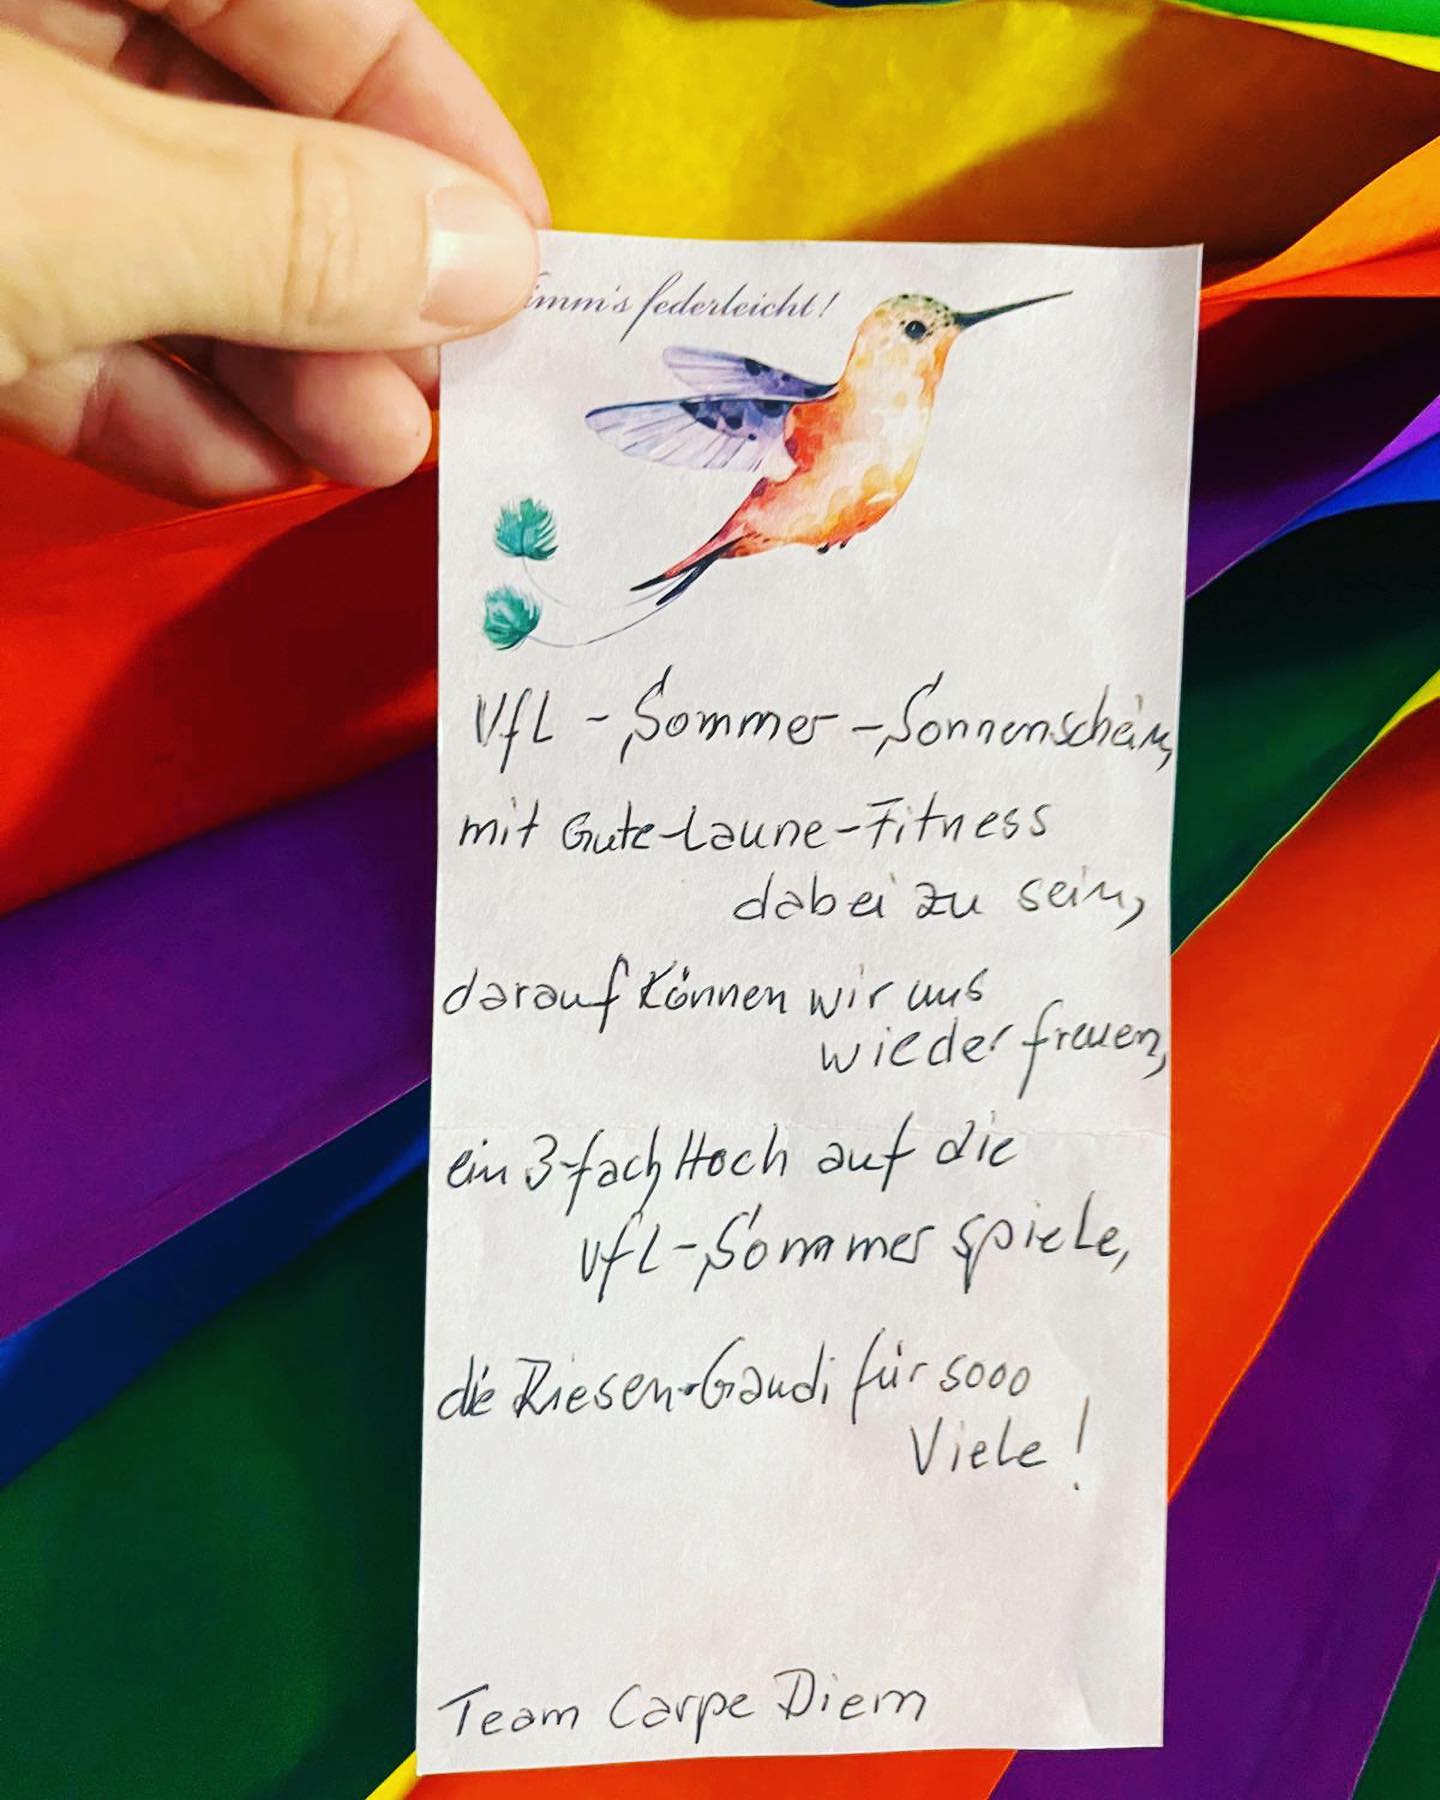 imm's federleicht!
VfL - Sommer - Sonnenschein,
mit Gute-Laune-Fitness
dabei zu sein,
darauf können wir uns
wieder freuen,
ein 3-fach Hoch auf die
VfL-Sommerspiele,
die Riesen-Gaudi für sooo
Viele!
Team Carpe Diem